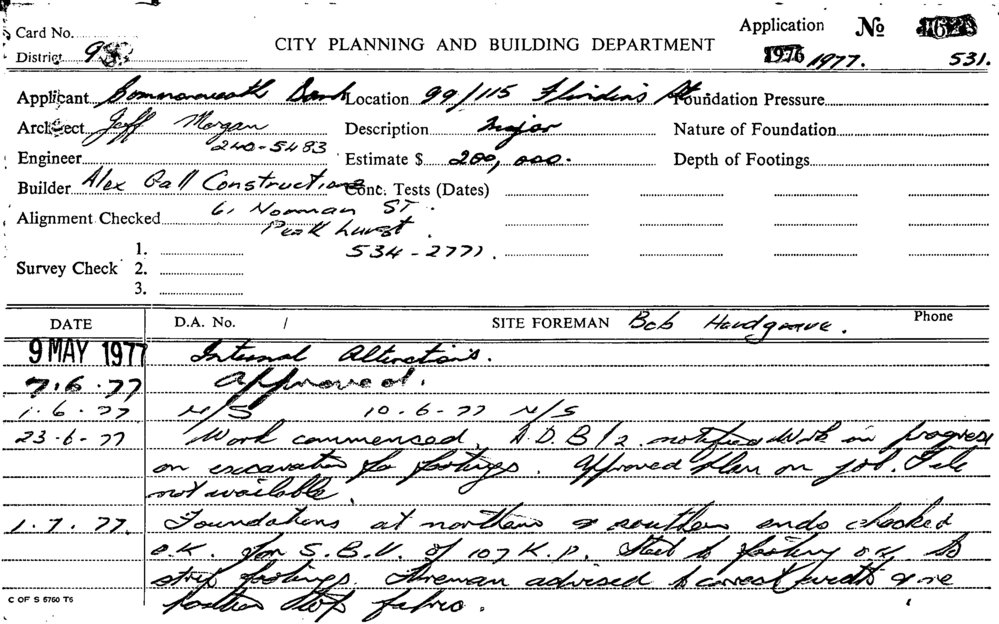 Card No.
District 9
CITY PLANNING AND BUILDING DEPARTMENT
Application No
1976 1977. 531.
Applicant Commonwealth Bank Location 99/115 Flinders St. Foundation Pressure
Architect Geoff Morgan Description Major Nature of Foundation
240-5483
Engineer Estimate $ 200,000. Depth of Footings
Builder Alex Gall Constructions Conc. Tests (Dates)
Alignment Checked 61 Norman ST.
Peakhurst.
1. 534-2771.
Survey Check 2.
3.
DATE D.A. No. / SITE FOREMAN Bob Phone
9 MAY 1977 Internal Alterations.
7.6.77 Approved.
1.6.77 N/S 10-6-77 N/S
23-6-77 Work commenced. A.D.B/2. notified Work in progress
on excavation for footings. Approved plan on job. File
not available.
1.7.77. Foundations at northern & southern ends checked
O.K. for S.B.V. of 107 K.P. Steel to footing O.K. to
strip footings. Foreman advised to correct width & re
position top fabric.
C OF S 5760 T5